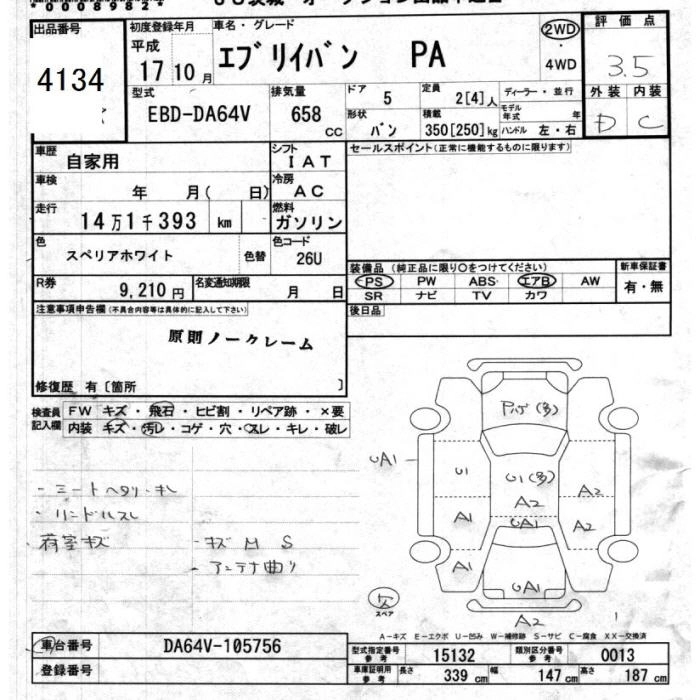 *0008982*
出品番号
4134
初度登録年月
平成
17 10月
車名・グレード
エブリイバン PA
2WD
・
4WD
評価点
3.5
外装 内装
D C
型式
EBD-DA64V
排気量
658 CC
ドア 5
形状 バン
定員 2[4]人
積載 350[250]kg
ディーラー・並行
モデル年式 年
ハンドル 左・右
車歴
自家用
シフト
IAT
車検
年 月( 日)
冷房
AC
走行
14万1千393 km
燃料
ガソリン
色
スペリアホワイト
色替
色コード
26U
R券
9,210円
名変通知期限
月 日
セールスポイント(正常に機能するものに限ります)
装備品(純正品に限り○をつけてください)
PS PW ABS エアB AW
SR ナビ TV カワ
新車保証書
有・無
後日品
注意事項申告欄(不具合内容等は具体的に記入して下さい)
原則ノークレーム
修復歴 有〔箇所 〕
検査員記入欄
FW キズ・飛石・ヒビ割・リペア跡・×要
内装 キズ・汚レ・コゲ・穴・スレ・キレ・破レ
・シートヘタリ・キレ
・リンドルスレ
荷室キズ
・キズ M S
・アンテナ曲り
UA1
U1
A1
A1
U1(多)
A2
UA1
UA1
A2
A2
A2
スペア
A−キズ E−エクボ U−凹み W−補修跡 S−サビ C−腐食 XX−交換済
車台番号
DA64V-105756
登録番号
型式指定番号
参考
15132
類別区分番号
参考
0013
車庫証明用
参考
長さ 339 cm
幅 147 cm
高さ 187 cm